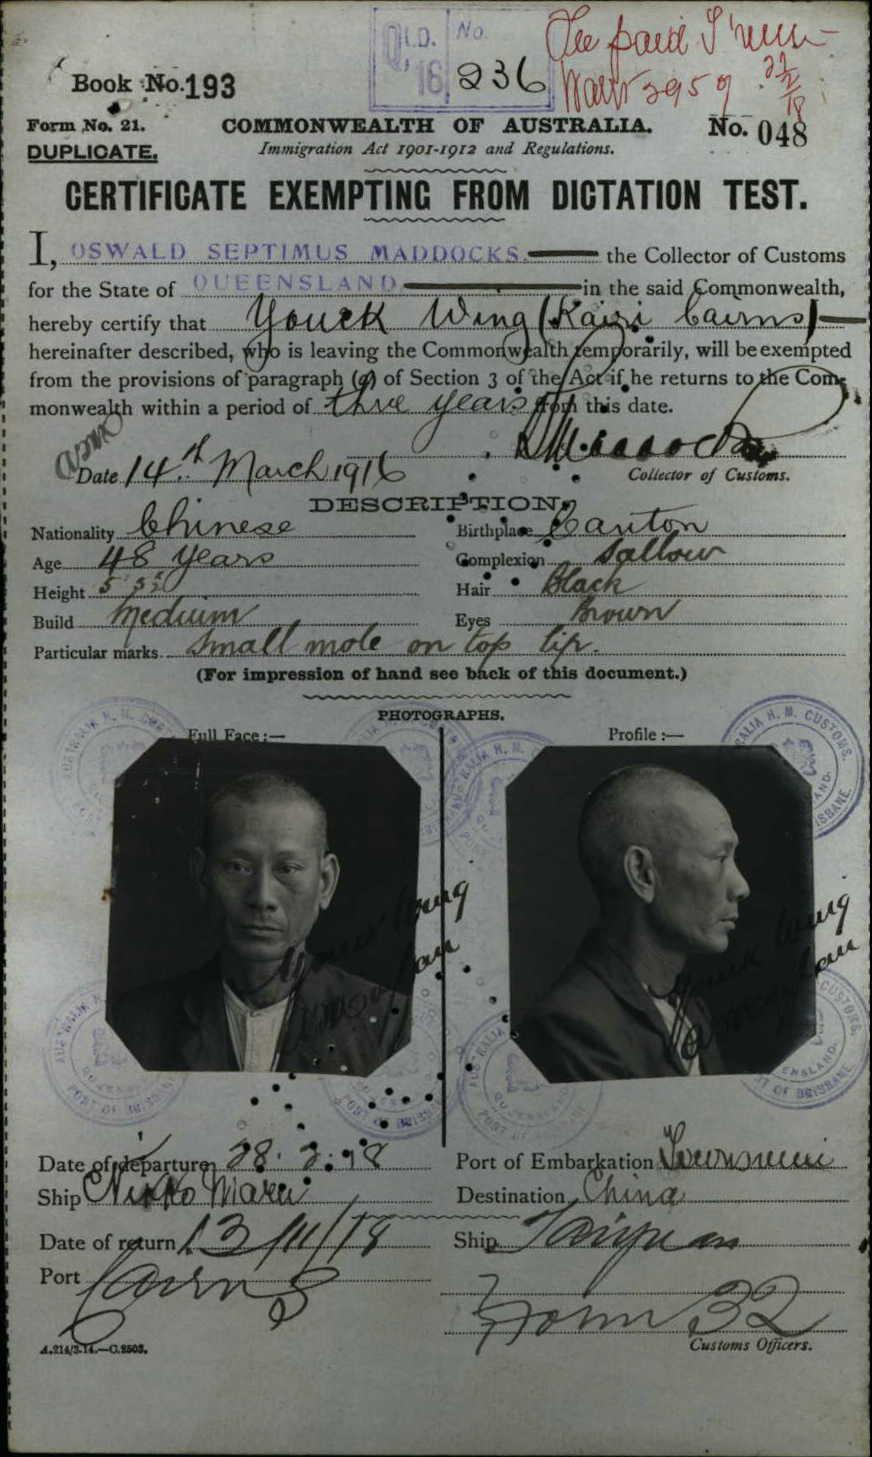 QLD. No.
'16 236
Fee paid T'
Book No. 193
Form No. 21.
DUPLICATE.
COMMONWEALTH OF AUSTRALIA.
Immigration Act 1901-1912 and Regulations.
No. 048
CERTIFICATE EXEMPTING FROM DICTATION TEST.
I, OSWALD SEPTIMUS MADDOCKS. the Collector of Customs
for the State of QUEENSLAND in the said Commonwealth,
hereby certify that Youck Wing (Kairi Cairns)
hereinafter described, who is leaving the Commonwealth temporarily, will be exempted
from the provisions of paragraph (a) of Section 3 of the Act if he returns to the Com-
monwealth within a period of three years from this date.
Date 14th March 1916
Collector of Customs.
DESCRIPTION.
Nationality Chinese Birthplace Canton
Age 48 years Complexion Sallow
Height 5' Hair Black
Build Medium Eyes Brown
Particular marks Small mole on top lip.
(For impression of hand see back of this document.)
PHOTOGRAPHS.
Full Face :— Profile :—
Youck Wing
Youck Wing
Date of departure 28.2.18 Port of Embarkation Townsville
Ship Nikko Maru Destination China
Date of return 13/11/18 Ship Taiyuan
Port Cairns
Form 32
A.214/3.14.—C.2503. Customs Officers.